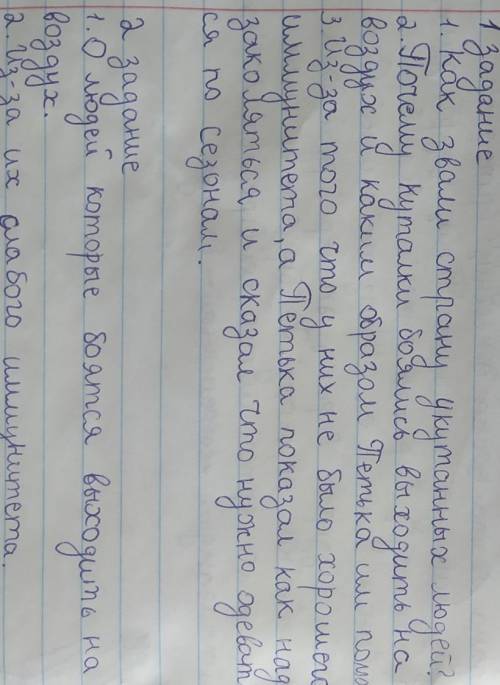 1 задание
1. Как звали страну укутанных людей?
2. Почему куталки боялись выходить на
воздух и каким образом Петька им помо
3. Из-за того что у них не было хорошего
иммунитета, а Петька показал как над
закаляться и сказал что нужно одеват
ся по сезонам.
2 задание
1. О людей которые боятся выходить на
воздух.
2. Из-за их слабого иммунитета.